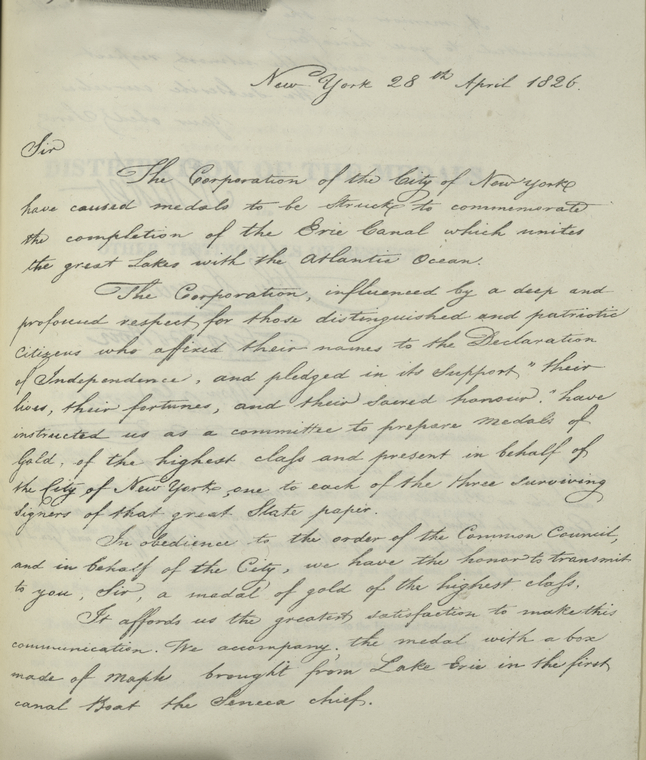 New York 28th April 1826.
Sir
The Corporation of the City of New York
have caused medals to be Struck to commemorate
the completion of the Erie Canal which unites
the great Lakes with the Atlantic Ocean.
The Corporation, influenced by a deep and
profound respect for those distinguished and patriotic
Citizens who affixed their names to the Declaration
of Independence, and pledged in its Support "their
lives, their fortunes, and their Sacred honour," have
instructed us as a committee to prepare medals of
Gold, of the highest class and present in behalf of
the City of New York, one to each of the three surviving
Signers of that great State paper.
In obedience to the order of the Common Council,
and in behalf of the City, we have the honor to transmit
to you, Sir, a medal of gold of the highest class.
It affords us the greatest satisfaction to make this
communication. We accompany the medal with a box
made of Maple brought from Lake Erie in the first
canal Boat the Seneca chief.